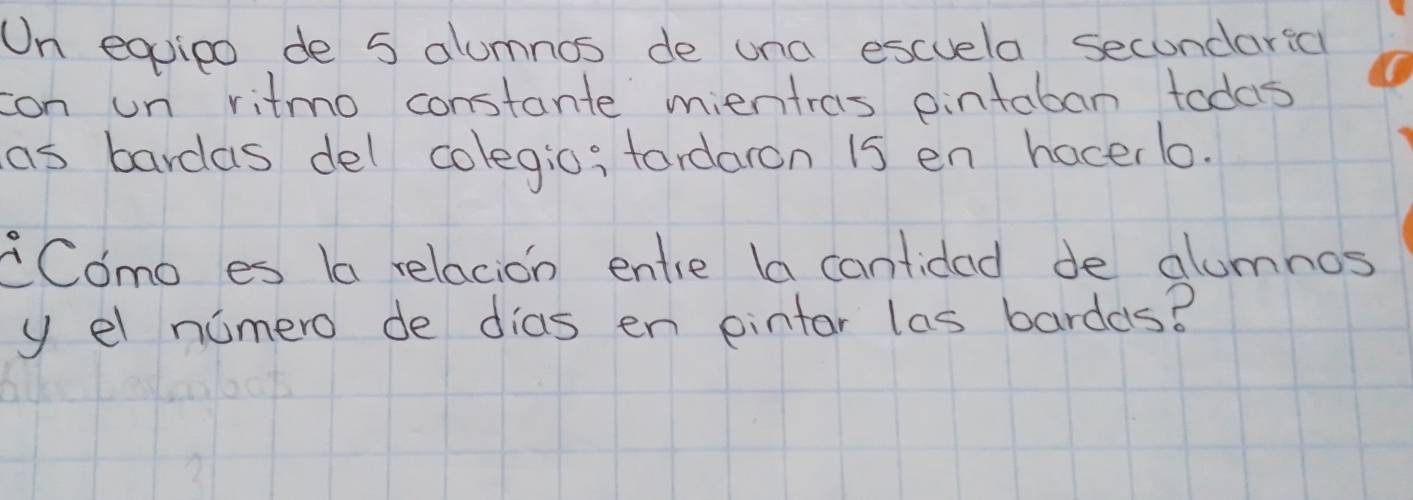 Un equipo de 5 alumnos de una escuela secundaria
con un ritmo constante mientras pintaban todas
as bardas del colegio; tardaron 15 en hacerlo.
¿Cómo es la relación entre la cantidad de alumnos
y el número de días en pintar las bardas?